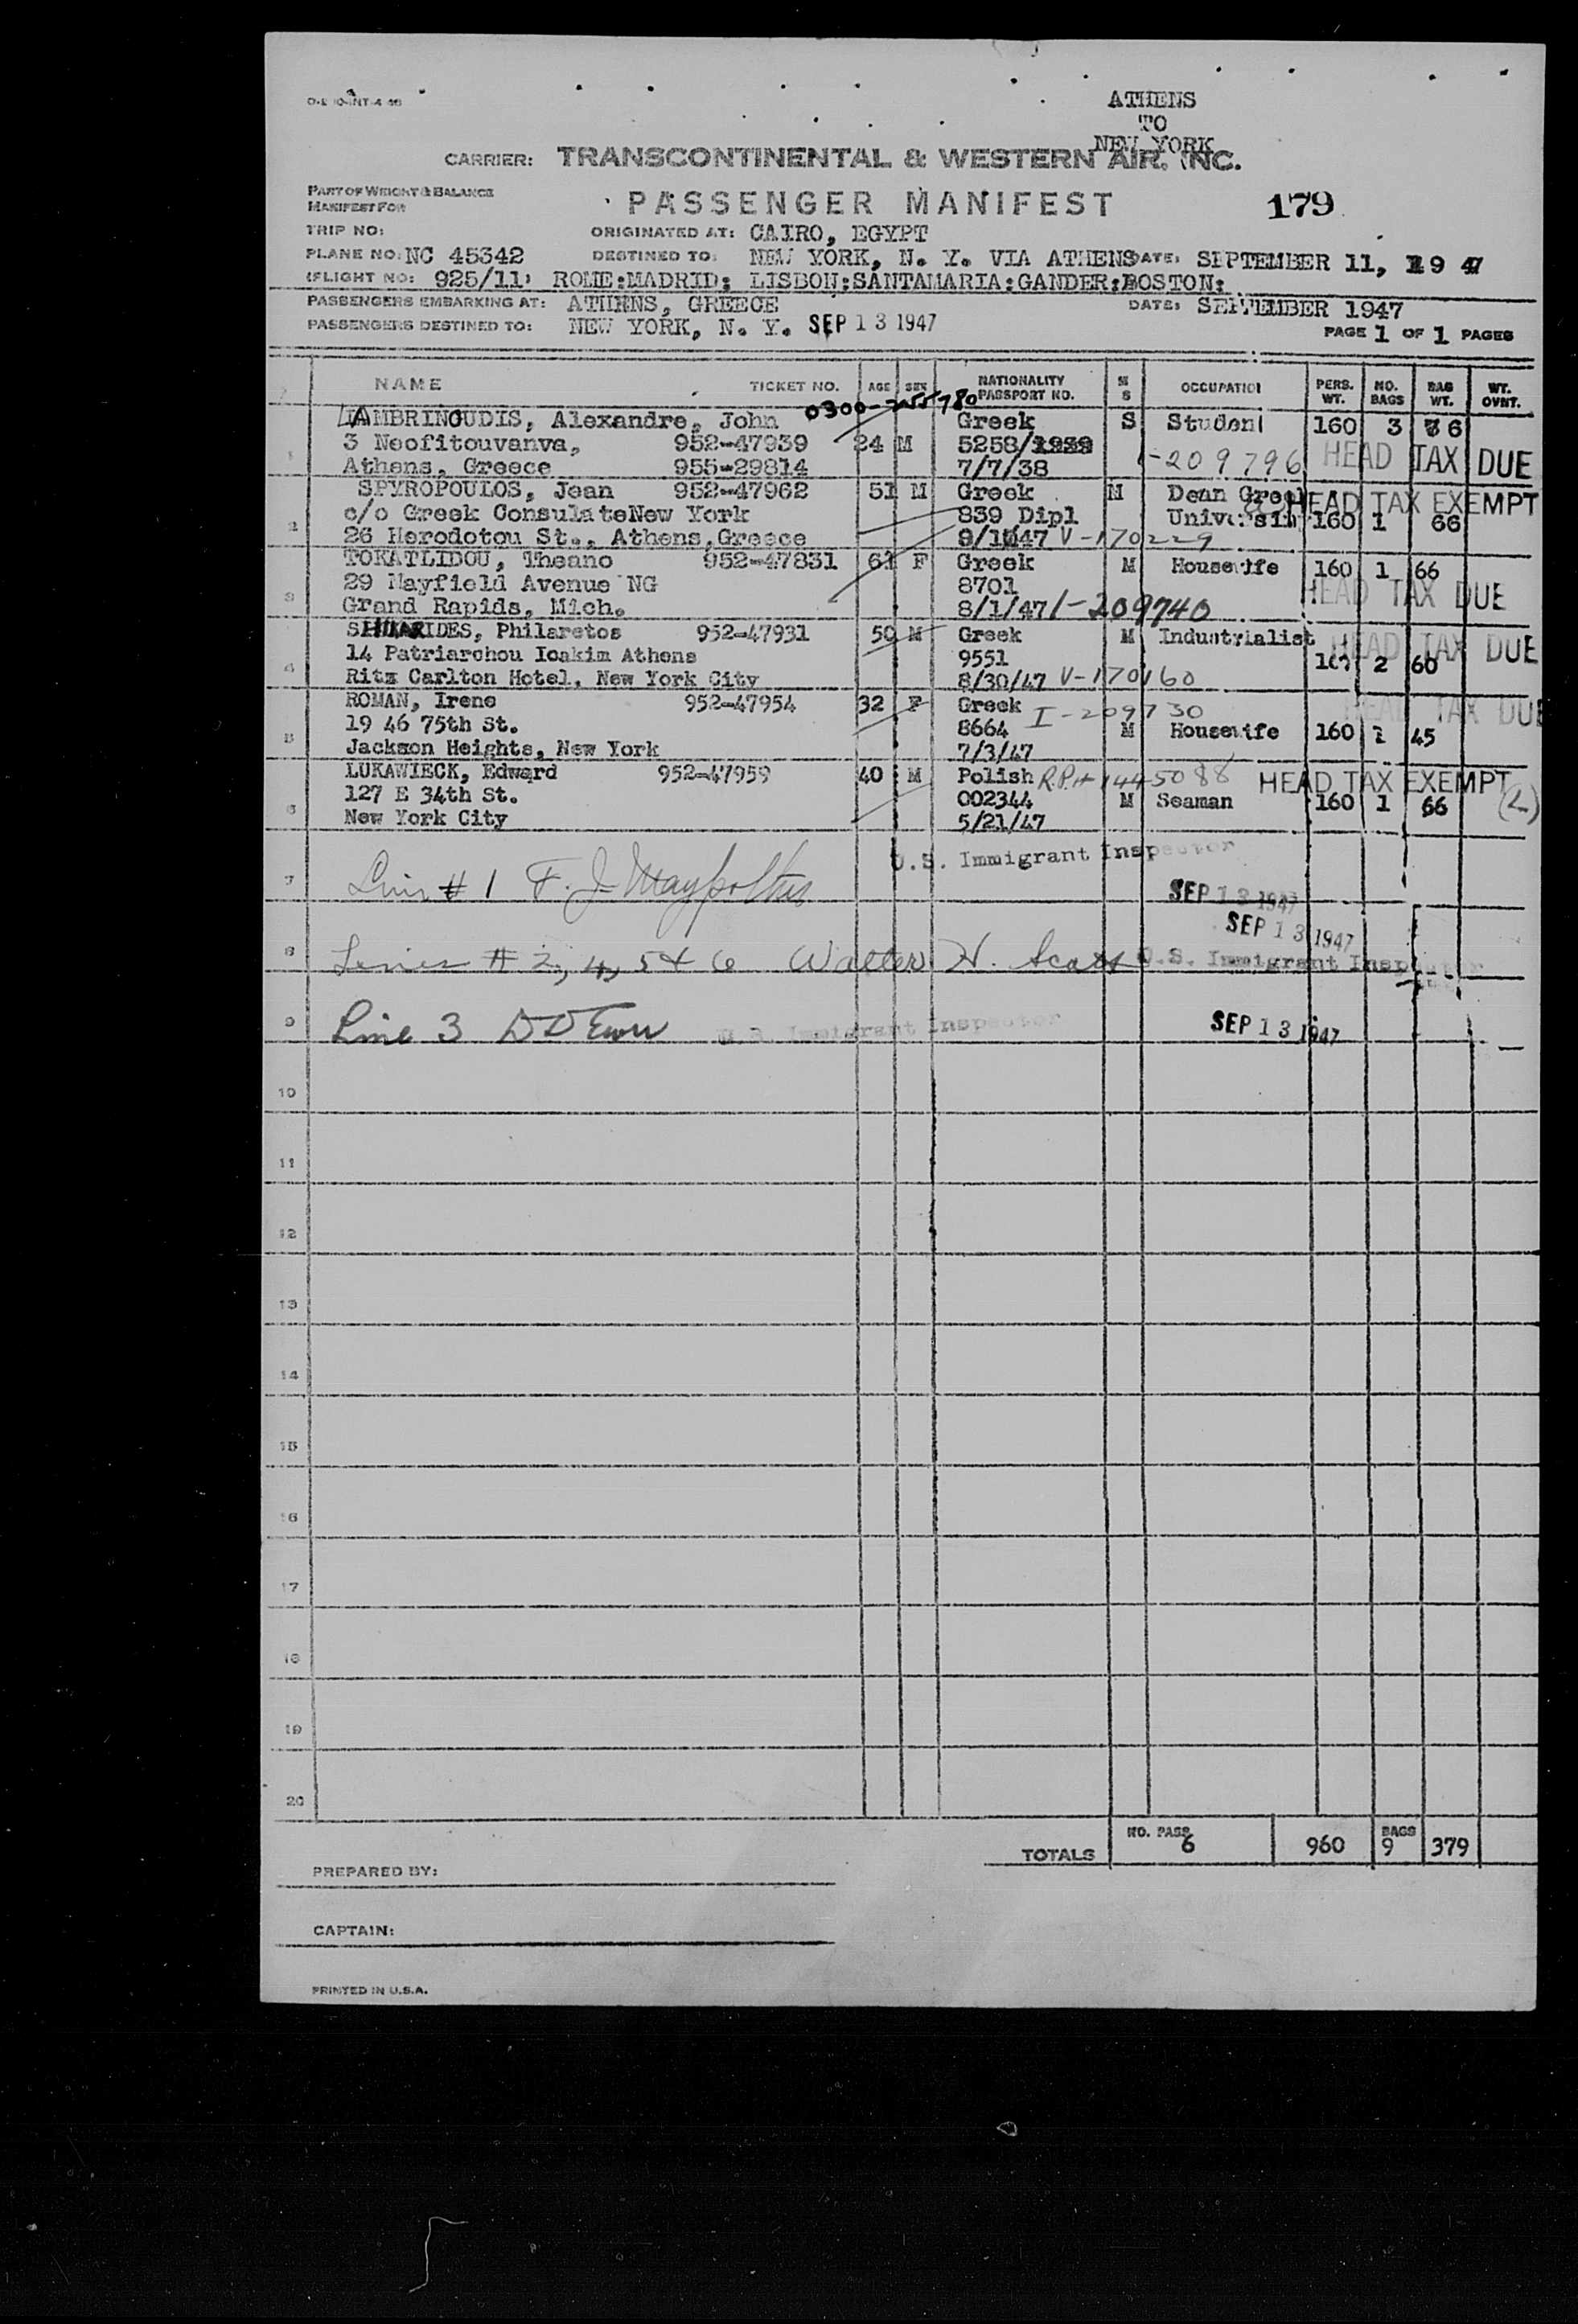 ATHENS
TO
NEW YORK
CARRIER: TRANSCONTINENTAL & WESTERN AIR, INC.
PART OF WEIGHT & BALANCE
MANIFEST FOR
PASSENGER MANIFEST 179
TRIP NO: ORIGINATED AT: CAIRO, EGYPT
PLANE NO: NC 45342 DESTINED TO: NEW YORK, N. Y. VIA ATHENS DATE: SEPTEMBER 11, 1947
(FLIGHT NO: 925/11) ROME:MADRID; LISBON:SANTAMARIA:GANDER:BOSTON:
PASSENGERS EMBARKING AT: ATHENS, GREECE DATE: SEPTEMBER 1947
PASSENGERS DESTINED TO: NEW YORK, N. Y. SEP 13 1947
PAGE 1 OF 1 PAGES
NAME TICKET NO. AGE SEX NATIONALITY PASSPORT NO. M S OCCUPATION PERS. WT. NO. BAGS BAG WT. WT. OVNT.
0300-255780
LAMBRINOUDIS, Alexandre, John Greek S Student 160 3 76
1 3 Neofitouvanva, 952-47939 24 M 5258/1939
Athens, Greece 955-29814 7/7/38 I-209796 HEAD TAX DUE
SPYROPOULOS, Jean 952-47962 51 M Greek M Dean Greek HEAD TAX EXEMPT
2 c/o Greek Consulate New York 839 Dipl University 160 1 66
26 Herodotou St., Athens, Greece 47 V-170229
TOKATLIDOU, Theano 952-47831 61 F Greek M Housewife 160 1 66
3 29 Mayfield Avenue NG 8701 HEAD TAX DUE
Grand Rapids, Mich. 8/1/47 I-209740
Philaretos 952-47931 50 M Greek M Industrialist HEAD TAX DUE
4 14 Patriarchou Ioakim Athens 9551 160 2 60
Ritz Carlton Hotel, New York City 8/30/47 V-170160
ROMAN, Irene 952-47954 32 F Greek I-209730 HEAD TAX DUE
5 19 46 75th St. 8664 M Housewife 160 1 45
Jackson Heights, New York 7/3/47
LUKAWIECK, Edward 952-47959 40 M Polish HEAD TAX EXEMPT
6 127 E 34th St. 002344 M Seaman 160 1 66 (2)
New York City 5/21/47
U.S. Immigrant Inspector
7 Line # 1 F. J. SEP 13 1947
SEP 13 1947
8 Lines # 2, 4, 5 & 6 Walter H. U.S. Immigrant Inspector
9 Line 3 U.S. Immigrant Inspector SEP 13 1947
10
11
12
13
14
15
16
17
18
19
20
TOTALS NO. PASS 6 960 BAGS 9 379
PREPARED BY:
CAPTAIN:
PRINTED IN U.S.A.